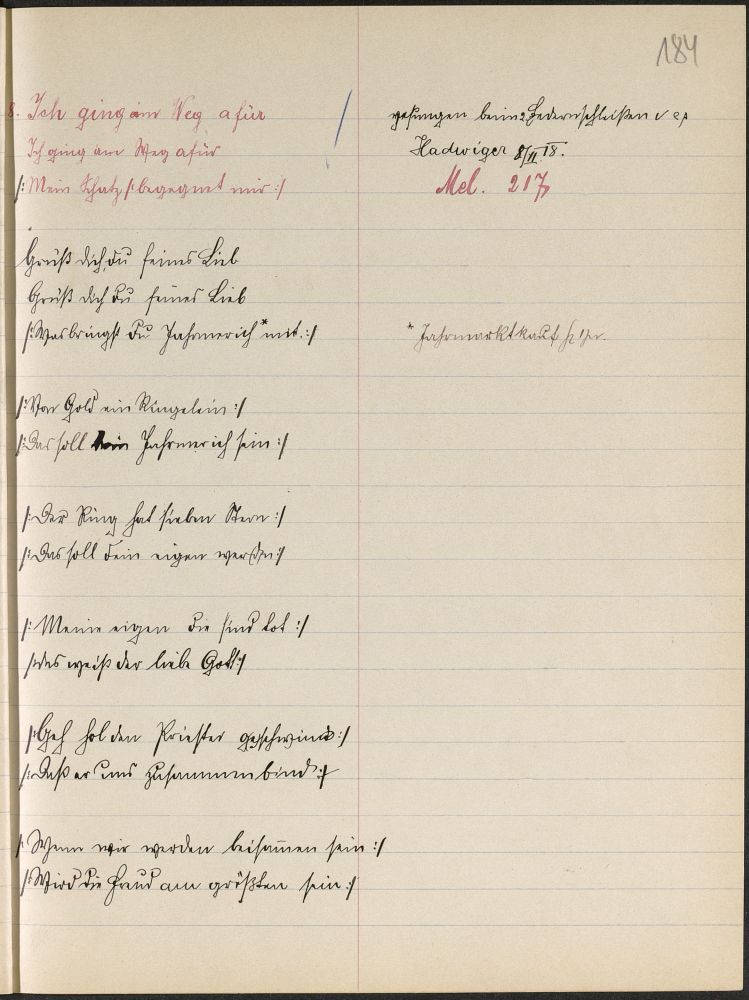 184
8. Ich ging am Weg afür
Ich ging am Weg afür
/: Mein Schatz /: begegnet mir :/
gesungen beim Federnschleißen v
Hadwiger 8/II 18.
Mel. 217
Grüß dich, du feines Lieb
Grüß dich du feines Lieb
/: Was bringst du Jahrmerich * mit. :/
* Jahrmarktkauf
/: Von Gold ein Ringelein :/
/: Das soll dein Jahrmerich sein :/
/: Der Ring hat sieben Stern :/
/: Das soll dein eigen werden :/
/: Meine eigen die sind tot :/
/: das weiß der liebe Gott :/
/: Geh hol den Priester geschwind :/
/: Daß er uns zusammenbind :/
/: Wenn wir werden beisam̄en sein :/
/: Wird die Freud am größten sein :/